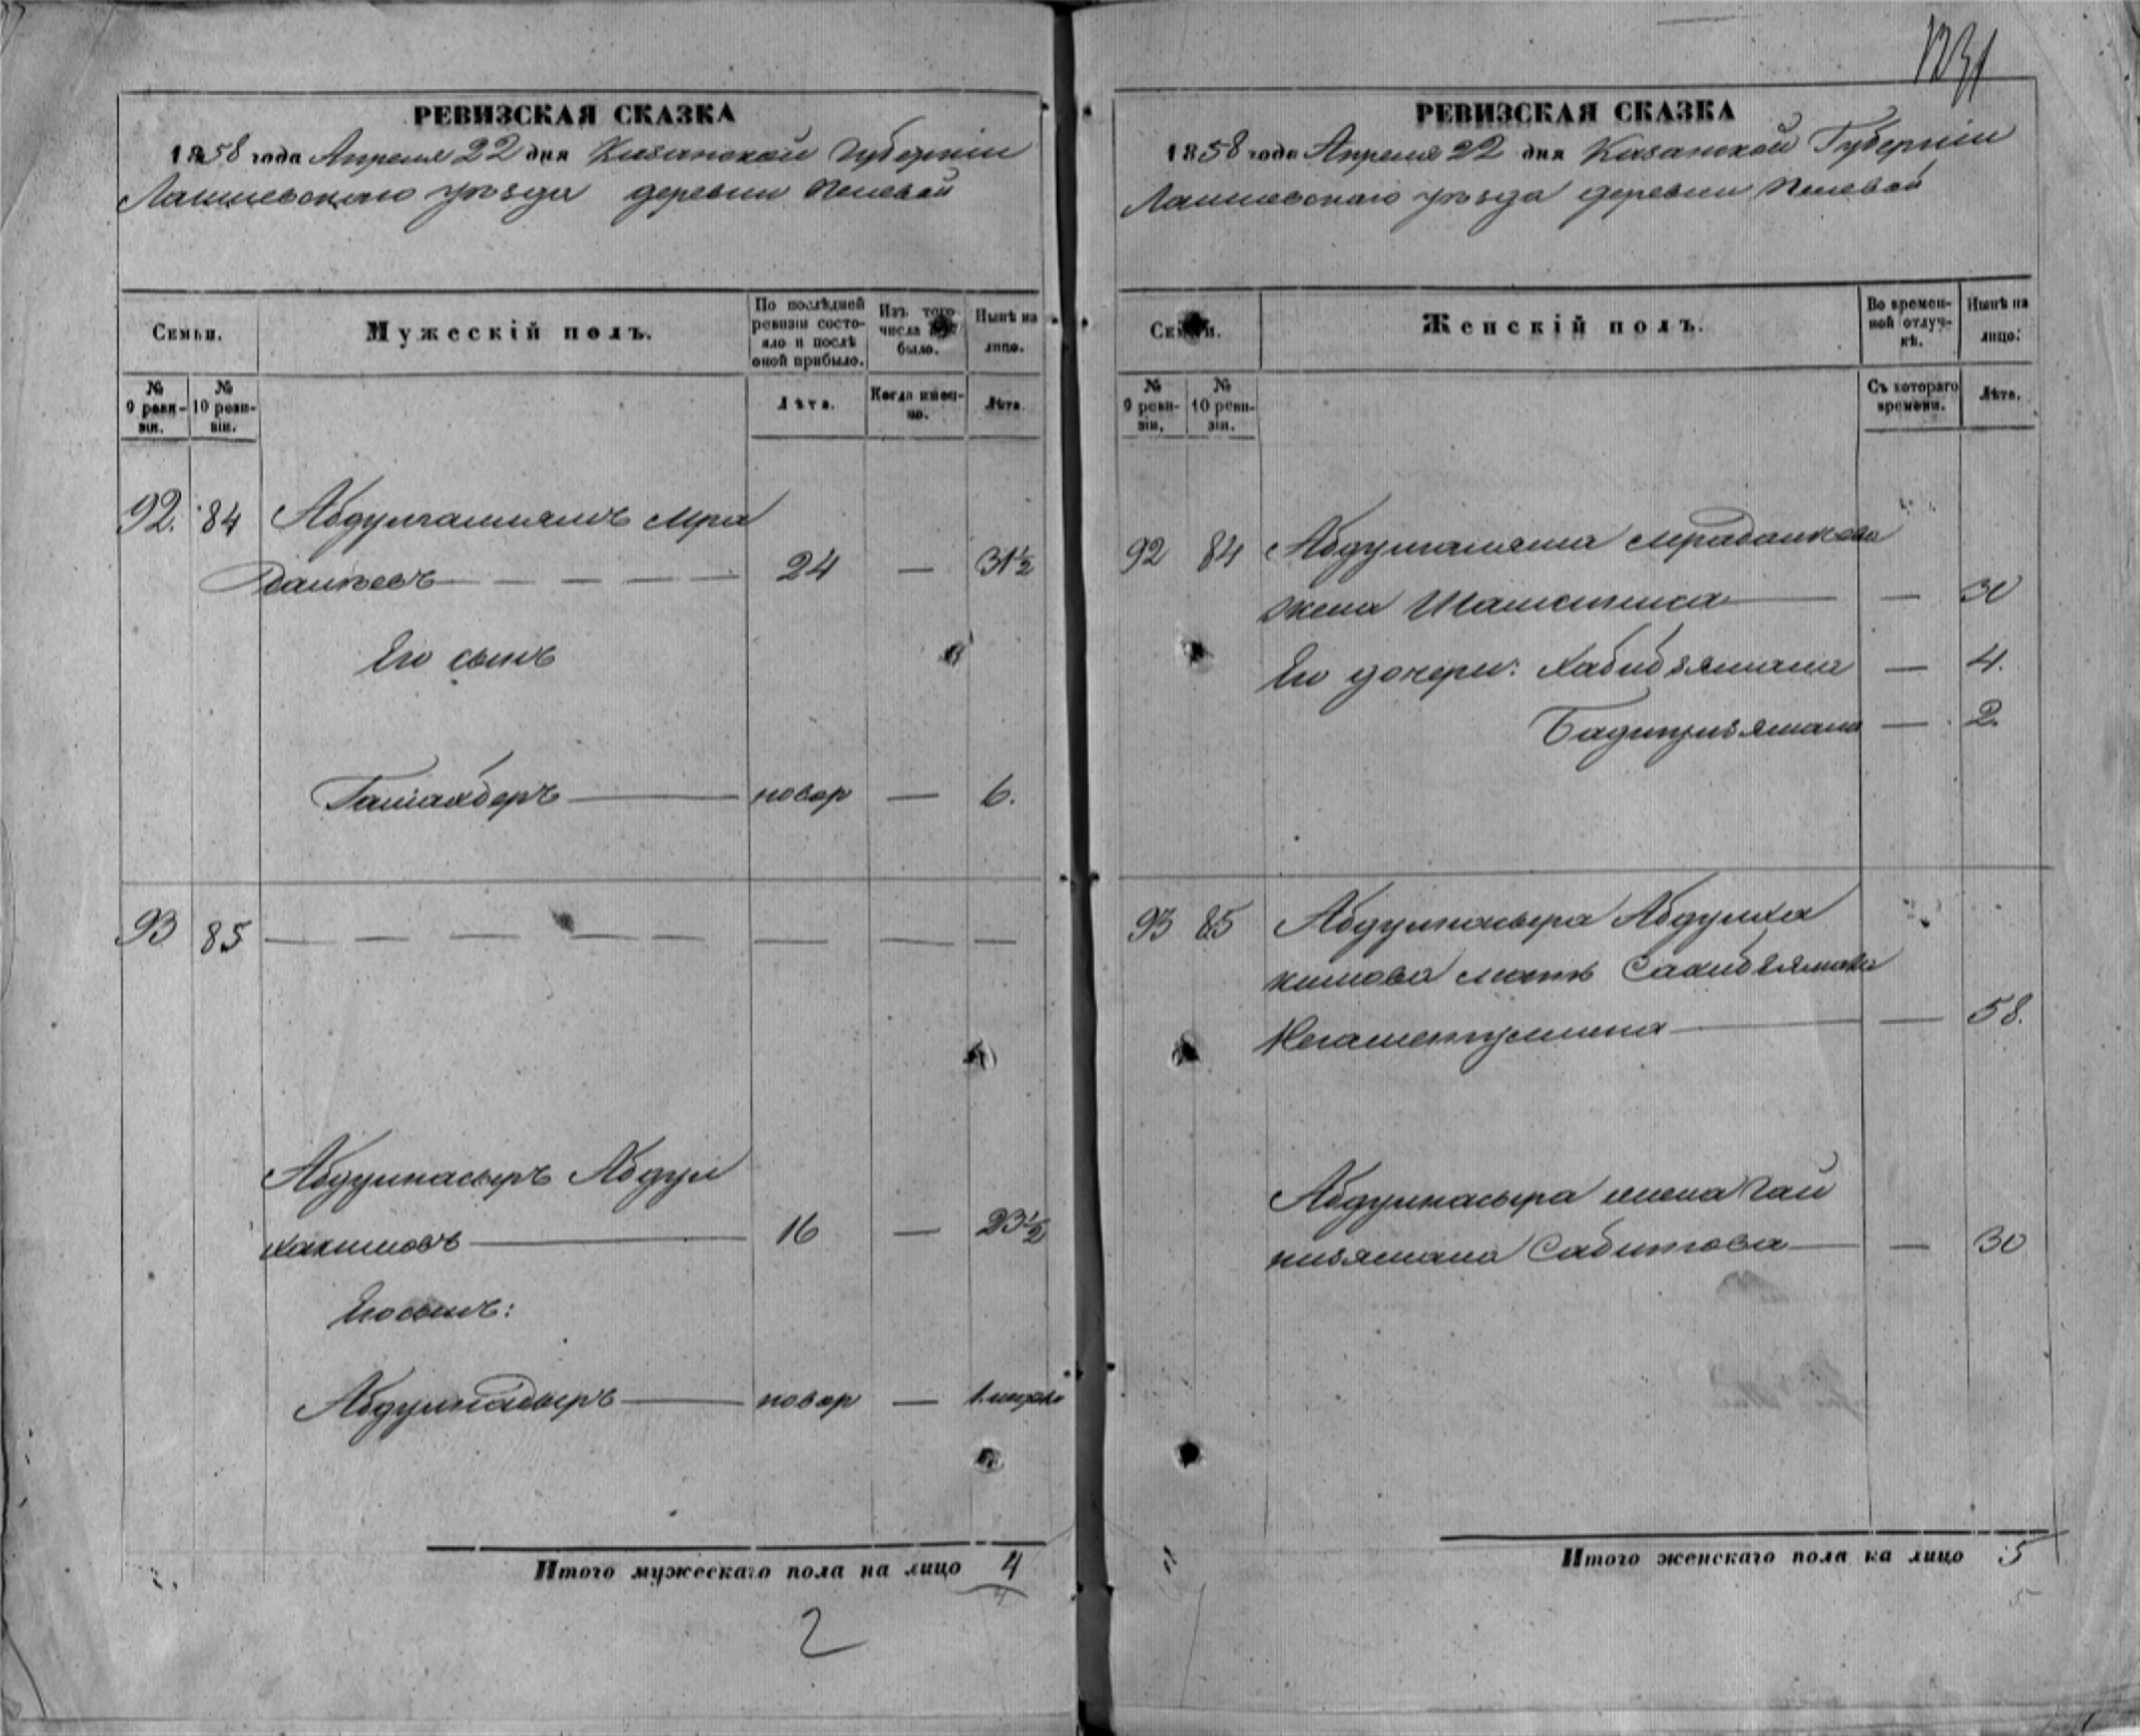 1231
РЕВИЗСКАЯ СКАЗКА
1858 года Апреля 22 дня Казанской Губернии
Лаишевскаго уѣзда деревни
Семьи.
Мужескій полъ.
По послѣдней ревизіи состояло и послѣ оной прибыло.
Изъ того числа было.
Нынѣ на лицо.
№ 9 ревизіи.
№ 10 ревизіи.
Лѣта.
Когда именно.
Лѣта.
92. 84
24 — 31½
Его сынъ
— новор — 6.
93 85 — — — — — — — —
Абдулнасыръ Абдул
хакимовъ — 16 — 23½
Его сынъ:
Абдулкадыръ — новор — 1
Итого мужескаго пола на лицо 4
4
2
РЕВИЗСКАЯ СКАЗКА
1858 года Апреля 22 дня Казанской Губернии
Лаишевскаго уѣзда деревни
Семьи.
Женскій полъ.
Во временной отлучкѣ.
Нынѣ на лицо:
№ 9 ревизіи.
№ 10 ревизіи.
Съ котораго времени.
Лѣта.
92 84
жена — — 30
Его дочери: Хабибзямала — 4.
— 2.
93 85 Абдулнасыра Абдулха
кимова мать
— — 58.
Абдулнасыра жена Гай
низямала Сабитова — — 30
Итого женскаго пола на лицо 5
5